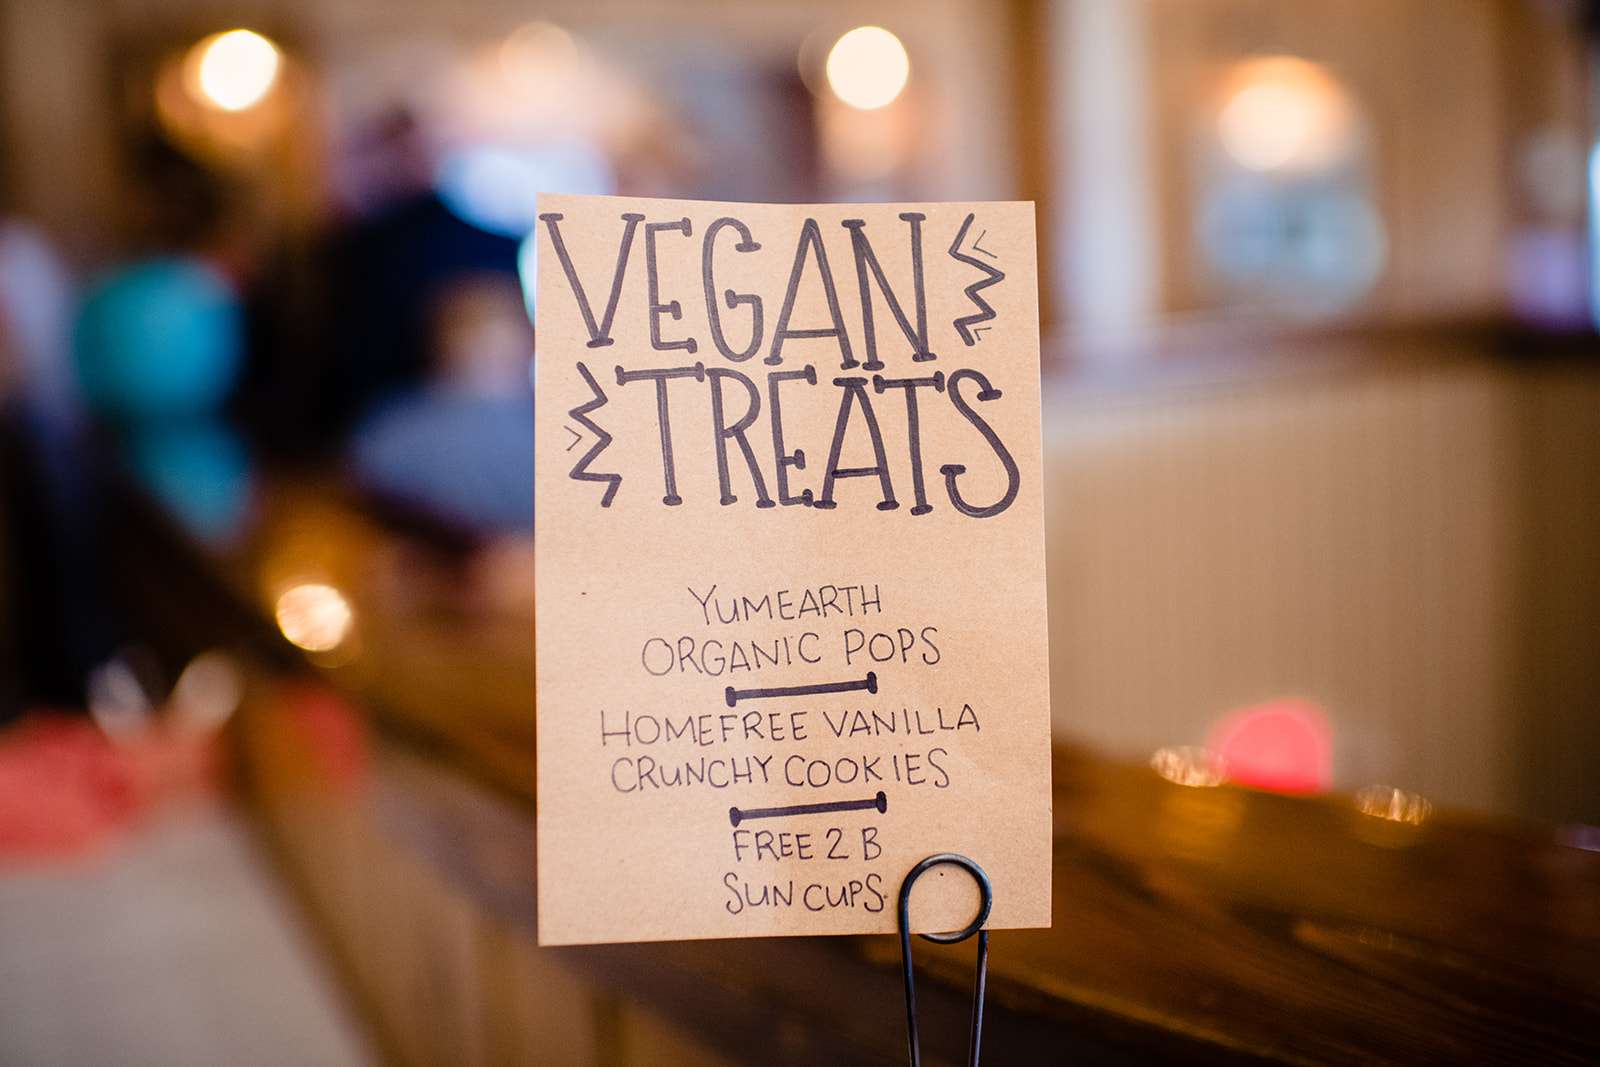 VEGAN
TREATS
YUMEARTH
ORGANIC POPS
HOMEFREE VANILLA
CRUNCHY COOKIES
FREE 2 B
SUN CUPS